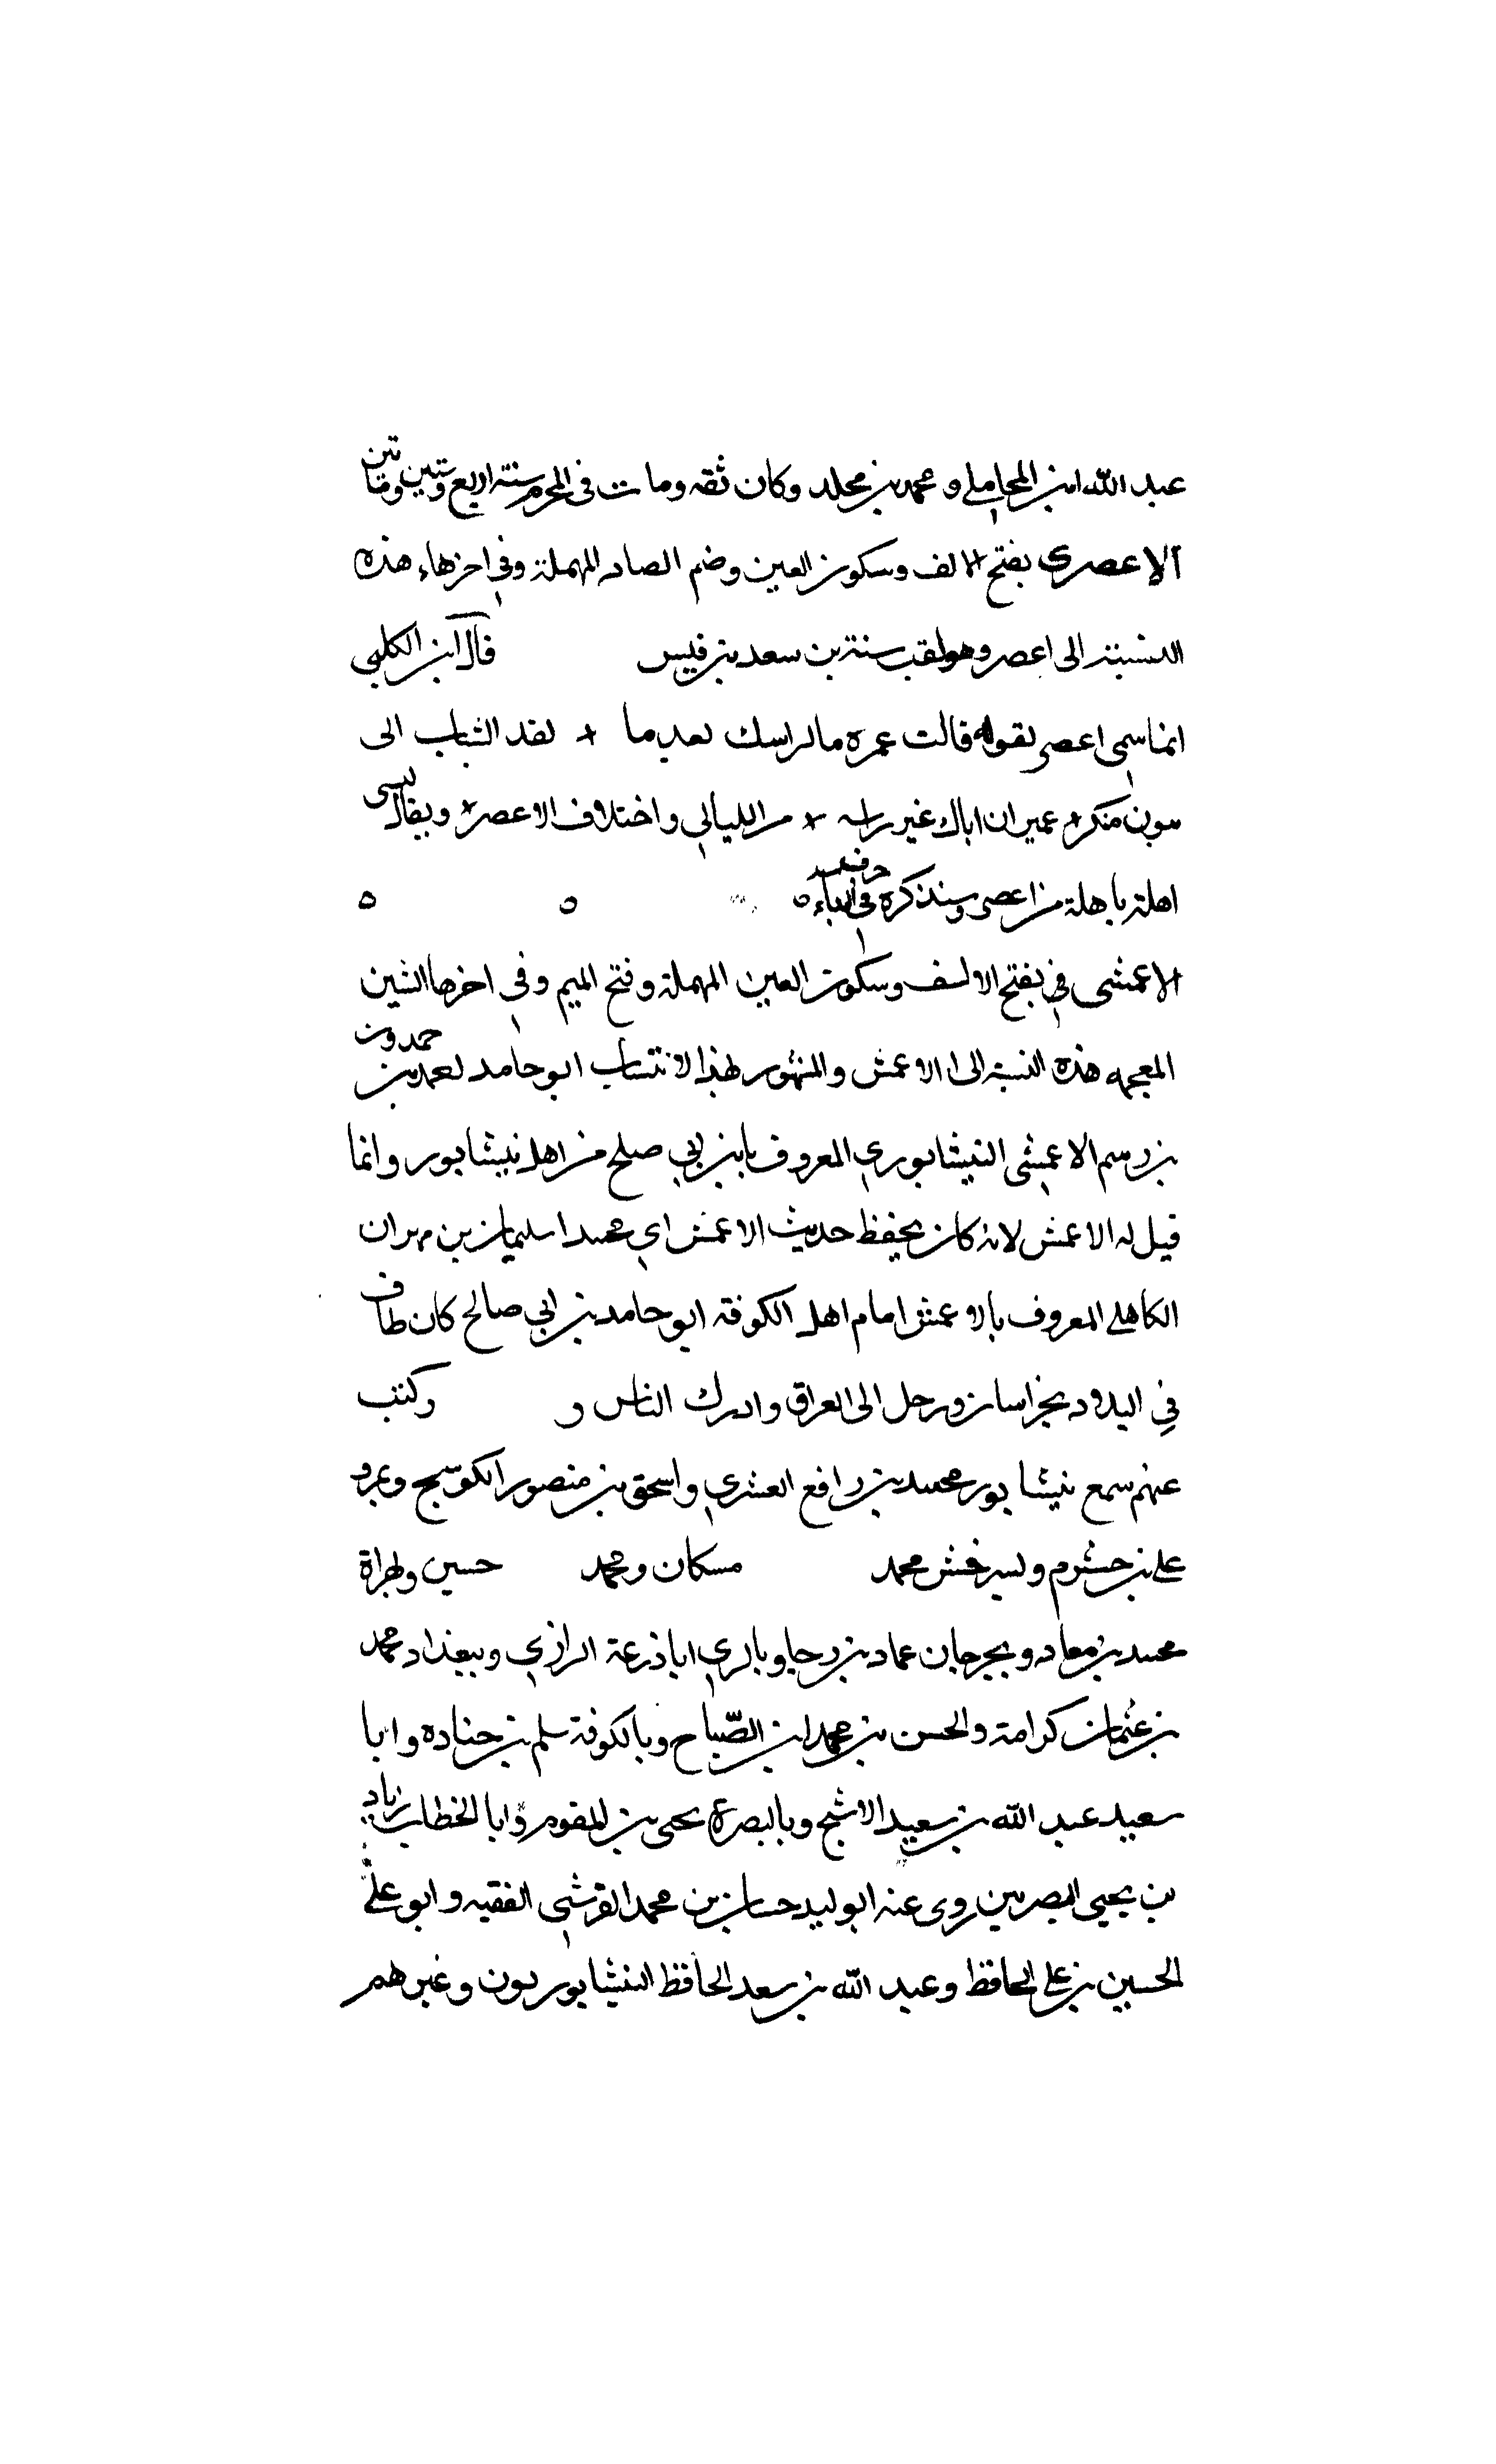 عبد الله ابن المحاملي و محمد بن مخلد وكان ثقه ومات فى المحرم سنة اربع وستين ومائتين
الاعصرى بفتح الالف وسكون العين وضم الصاد المهملة وفي اخرهاء هذه
النسبة الى اعصر وهو لقب سنة بن سعد بن قيس قال ابن الكلبي
انما سمى اعصر لقوله قالت عمره مالراسك بعدما + نفد الشباب الى
بلون منكر + عمير ان اباك غير راسه + مر الليالي واختلاف الاعصر + ويقال ليس
اهلة باهلة من اعصر وسنذكره في حرف الباء ه ه ه
الاعمشى في بفتح الالف وسكون العين المهملة وفتح الميم وفي اخرها الشين
المعجمه هذه النسبة الى الاعمش والمشهور بهذا الانتساب ابو حامد احمد بن حمدون
بن رستم الاعمشى النيشابوري المعروف بابن ابي صلح من اهل نيشابور وانما
قيل له الاعمش لانه كان يحفظ حديث الاعمش اي محمد سليمان بن مهران
الكاهلي المعروف بالاعمش امام اهل الكوفة ابو حامد بن ابي صالح كان طاف
في البلاد بخراسان ورحل الى العراق وادرك الناس و وكتب
عنهم سمع نيشابور محمد بن رافع العشري واسحق بن منصور الكوسج وبمرو
على بن خشرم وبسرخس محمد مسكان ومحمد حسين وبهراة
محمد بن معاد وبجرجان عماد بن رجا وبالري ابا ذرعة الرازي وببغداد محمد
بن عثمان كرامة والحسن بن محمد بن الصباح وبالكوفة سلم بن جناده وابا
سعيد عبد الله بن سعيد الاشج وبالبصرة يحيى بن المقوم وابا الخطاب زياد
بن يحيى البصريين روى عنه ابو ليد حسان بن محمد القرشى الفقيه وابو على
الحسين بن على الحافظ وعبد الله بن سعد الحافظ النيشابوريون وغيرهم